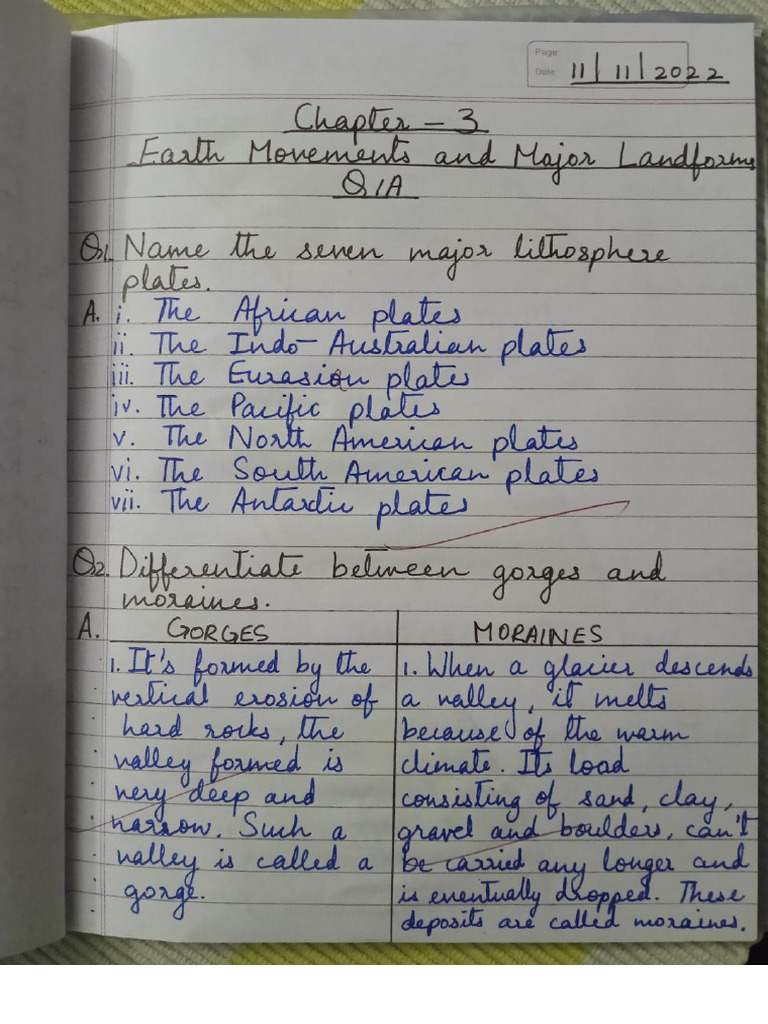 Page:
Date: 11/11/2022
Chapter - 3
Earth Movements and Major Landforms
Q1A
Q1. Name the seven major lithosphere
plates.
A. i. The African plates
ii. The Indo-Australian plates
iii. The Eurasian plates
iv. The Pacific plates
v. The North American plates
vi. The South American plates
vii. The Antarctic plates
Q2. Differentiate between gorges and
moraines.
A. GORGES
1. It's formed by the
vertical erosion of
hard rocks, the
valley formed is
very deep and
narrow. Such a
valley is called a
gorge.
MORAINES
1. When a glacier descends
a valley, it melts
because of the warm
climate. Its load
consisting of sand, clay,
gravel and boulders, can't
be carried any longer and
is eventually dropped. These
deposits are called moraines.